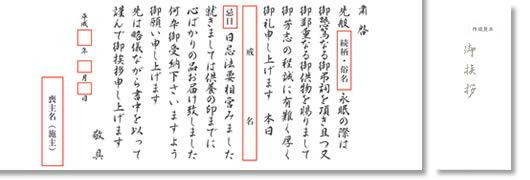 粛啓
先般 続柄・俗名 永眠の際は
御懇篤なる御弔詞を頂き且つ又
御鄭重なる御供物を賜りまして
御芳志の程誠に有難く厚く
御礼申し上げます 本日
戒名
忌日 日忌法要相営みました
就きましては供養の印までに
心ばかりの品お届け致しました
何卒御受納下さいますよう
御願い申し上げます
先は略儀ながら書中を以って
謹んで御挨拶申し上げます
敬具
平成 年 月 日
喪主名(施主)
御挨拶